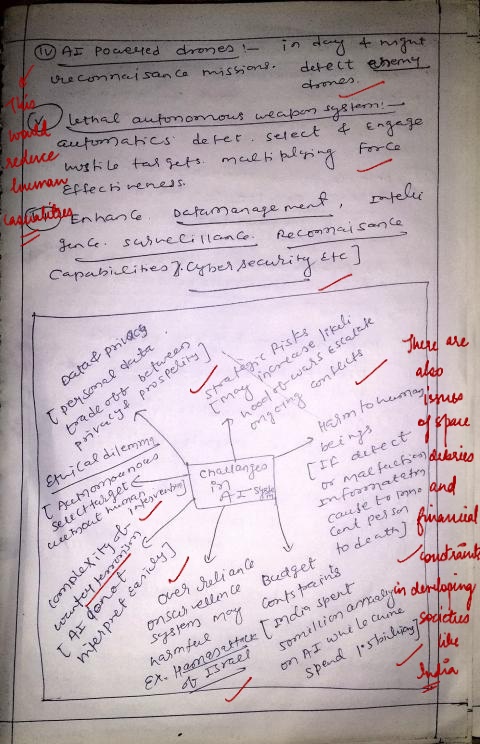 (iv) AI Powered drones :- in day & night
reconnaisance missions. detect enemy
drones.
(v) lethal autonomous weapon system :-
automatics detet. select & Engage
hostile targets. multiplying Force
Effectiveness.
Enhance Datamanagement, Inteli
gence. surveillance. Reconnaisance
Capabilities & Cyber security Etc]
This
would
reduce
human
casualities
Data privacy
[personal data
trade off between
privacy & prosperity]
strategic risks
[may increase likeli
hood of wars Escalate
ongoing conflicts
Harm to human
beings
[If detect
or malfuction
Informatetn
cause to inno
cent person
to death]
Ethical dilemma
[Autonomous
select target
without human
intervention]
Challanges
in
AI System
Complexity of
[AI donot
interpret easily]
Over reliance
on survellence
system may
harmful
Ex. Hamas attack
of Israel
Budget
Constrains
[India spent
50 million annualy
on AI while china
spend 1.5 billion]
There are
also
issues
of space
debries
and
financial
constraints
in developing
societies
like
India